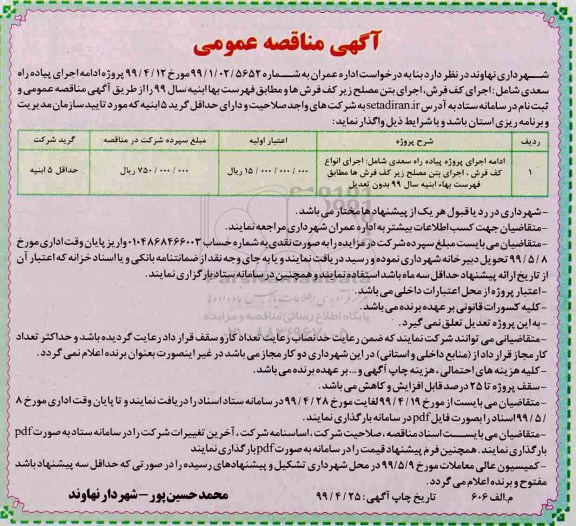 آگهی مناقصه عمومی
شهرداری نهاوند در نظر دارد بنا به درخواست اداره عمران به شماره ۹۹/۱/۰۲/۵۶۵۲ مورخ ۹۹/۴/۱۲ پروژه ادامه اجرای پیاده راه
سعدی شامل: اجرای کف فرش، اجرای بتن مصلح زیر کف فرش ها و مطابق فهرست بها ابنیه سال ۹۹ را از طریق آگهی مناقصه عمومی و
ثبت نام در سامانه ستاد به آدرس setadiran.ir به شرکت های واجد صلاحیت و دارای حداقل گرید ۵ ابنیه که مورد تایید سازمان مدیریت
و برنامه ریزی استان باشد و با شرایط ذیل واگذار نماید:
ردیف شرح پروژه اعتبار اولیه مبلغ سپرده شرکت در مناقصه گرید شرکت
۱ ادامه اجرای پروژه پیاده راه سعدی شامل: اجرای انواع
کف فرش، اجرای بتن مصلح زیر کف فرش ها مطابق
فهرست بهاء ابنیه سال ۹۹ بدون تعدیل
۱۵/۰۰۰/۰۰۰/۰۰۰ ریال ۷۵۰/۰۰۰/۰۰۰ ریال حداقل ۵ ابنیه
-شهرداری در رد یا قبول هر یک از پیشنهادها مختار می باشد.
-متقاضیان جهت کسب اطلاعات بیشتر به اداره عمران شهرداری مراجعه نمایند.
-متقاضیان می بایست مبلغ سپرده شرکت در مزایده را به صورت نقدی به شماره حساب ۰۱۰۴۸۶۸۴۶۶۰۰۳ واریز پایان وقت اداری مورخ
۹۹/۵/۸ تحویل دبیرخانه شهرداری نموده و رسید دریافت نمایند و یا به جای وجه نقد از ضمانتنامه بانکی و یا اسناد خزانه که اعتبار آن
از تاریخ ارائه پیشنهاد حداقل سه ماه باشد استفاده نمایند و همچنین در سامانه ستاد بارگزاری نمایند.
-اعتبار پروژه از محل اعتبارات داخلی می باشد.
-کلیه کسورات قانونی بر عهده برنده می باشد.
-به این پروژه تعدیل تعلق نمی گیرد.
-متقاضیانی می توانند شرکت نمایند که ضمن رعایت حد نصاب رعایت تعداد کار و سقف قرارداد رعایت گردیده باشد و حداکثر تعداد
کار مجاز قرارداد از (منابع داخلی و استانی) در این شهرداری دو کار مجاز می باشد در غیر اینصورت بعنوان برنده اعلام نمی گردد.
-کلیه هزینه های احتمالی، هزینه چاپ آگهی و... بر عهده برنده می باشد.
-سقف پروژه تا ۲۵ درصد قابل افزایش و کاهش می باشد.
-متقاضیان می بایست از مورخ ۹۹/۴/۱۹ لغایت مورخ ۹۹/۴/۲۸ در سامانه ستاد اسناد را دریافت نمایند و تا پایان وقت اداری مورخ ۸
۹۹/۵/ اسناد را بصورت فایل pdf در سامانه بارگذاری نمایند.
-متقاضیان می بایست اسناد مناقصه، صلاحیت شرکت، اساسنامه شرکت، آخرین تغییرات شرکت را در سامانه ستاد به صورت pdf
بارگذاری نمایند. همچنین فرم پیشنهاد قیمت را در سامانه به صورت pdf بارگذاری نمایند
-کمیسیون عالی معاملات مورخ ۹۹/۵/۹ در محل شهرداری تشکیل و پیشنهادهای رسیده را در صورتی که حداقل سه پیشنهاد باشد
مفتوح و برنده اعلام می گردد.
م.الف ۶۰۶ تاریخ چاپ آگهی: ۹۹/۴/۲۵ محمد حسین پور - شهردار نهاوند